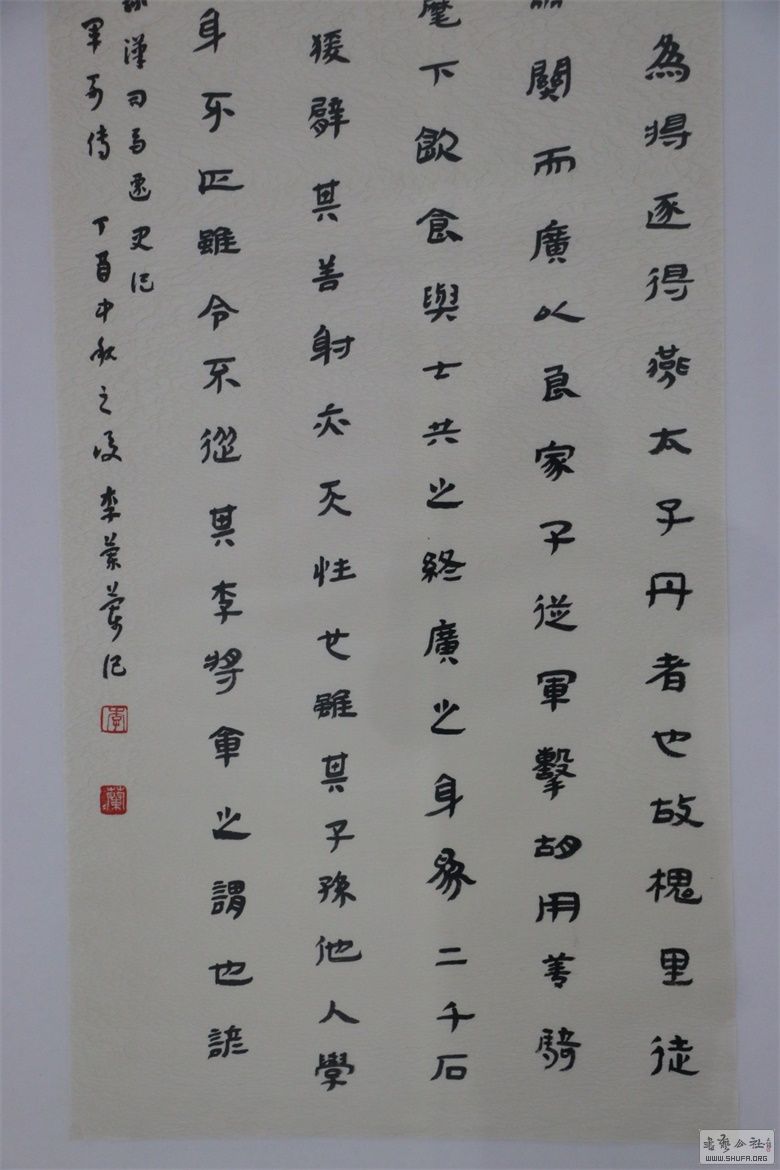 為將逐得燕太子丹者也故槐里徒
關而廣以良家子從軍擊胡用善騎
麾下飲食與士共之終廣之身為二千石
猨臂其善射亦天性也雖其子孫他人學
身不正雖令不從其李將軍之謂也諺
漢司馬遷史记
軍列傳 丁酉中秋之後 李 兰 记
李
蘭
书艺公社
WWW.SHUFA.ORG